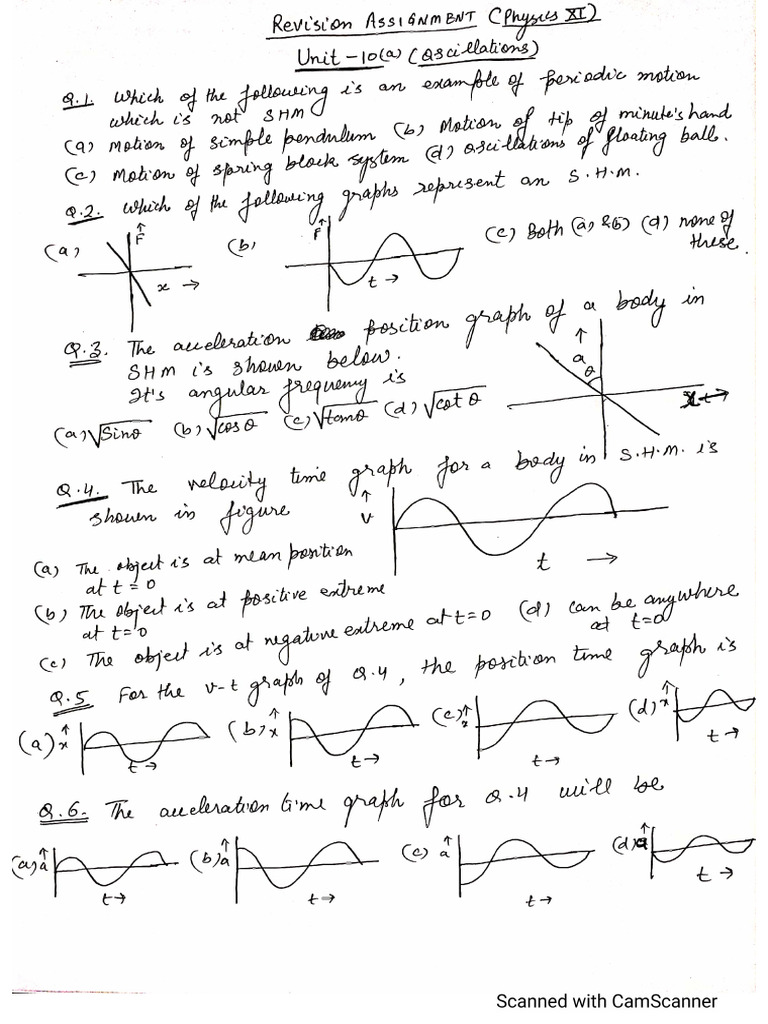 Revision ASSIGNMENT (Physics XI)
Unit -10(a) (Oscillations)
Q.1. Which of the following is an example of periodic motion
which is not SHM
(a) Motion of simple pendulum (b) Motion of tip of minute's hand
(c) Motion of spring block system (d) Oscillations of floating ball.
Q.2. Which of the following graphs represent an S.H.M.
(a) F x → (b) F t → (c) Both (a) & (b) (d) none of
these.
Q.3. The acceleration position graph of a body in
SHM is shown below.
It's angular frequency is
(a) √sinθ (b) √cosθ (c) √tanθ (d) √cot θ
a θ x →
Q.4. The velocity time graph for a body in S.H.M. is
shown in figure
v t →
(a) The object is at mean position
at t = 0
(b) The object is at positive extreme
at t=0
(c) The object is at negative extreme at t=0 (d) can be anywhere
at t=0
Q.5 For the v-t graph of Q.4, the position time graph is
(a) x t → (b) x t → (c) x t → (d) x t →
Q.6. The acceleration time graph for Q.4 will be
(a) a t → (b) a t → (c) a t → (d) a t →
Scanned with CamScanner